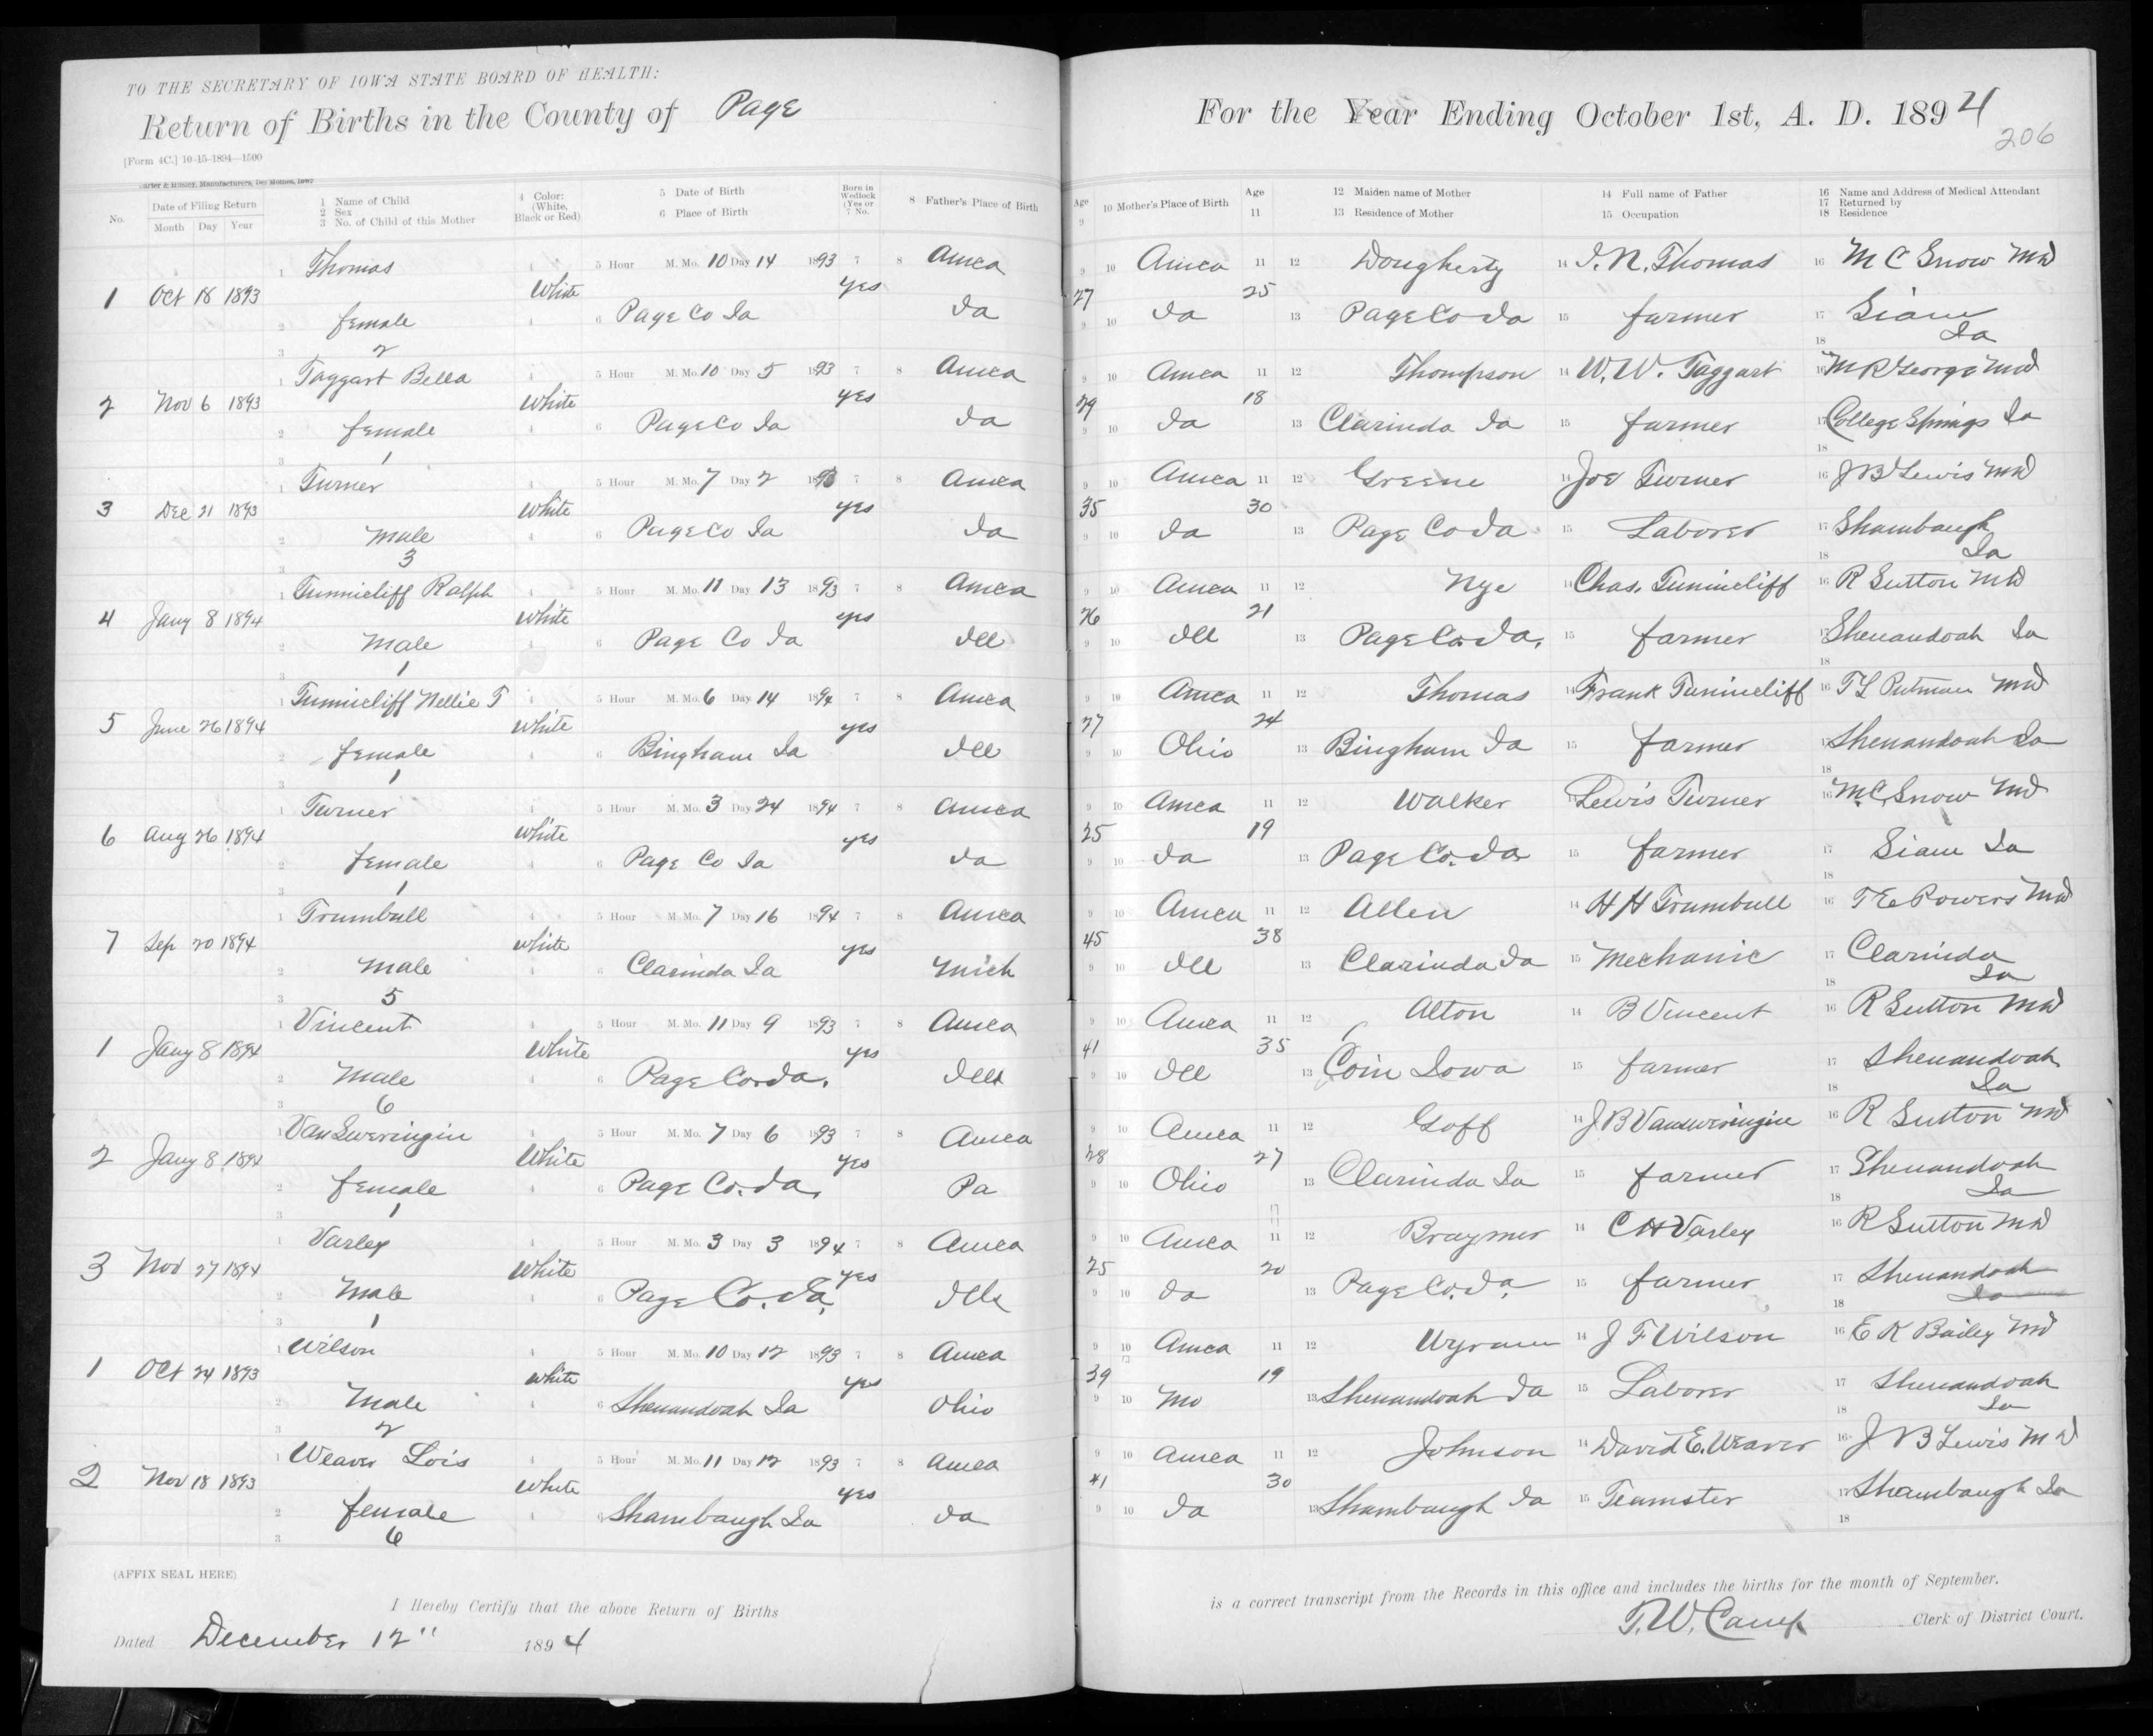 TO THE SECRETARY OF IOWA STATE BOARD OF HEALTH:
Return of Births in the County of Page
[Form 4C.] 10-15-1894—1500
Carter & Hussey, Manufacturers, Des Moines, Iowa
No. Date of Filing Return Month Day Year
1 Name of Child
2 Sex
3 No. of Child of this Mother
4 Color: (White, Black or Red)
5 Date of Birth
6 Place of Birth
Born in Wedlock (Yes or No. 7
8 Father's Place of Birth
Thomas 5 Hour M. Mo. 10 Day 14 1893 7 8 Amca
1 Oct 18 1893 White yes
female Page Co Ia Ia
2
Taggart Bella 5 Hour M. Mo. 10 Day 5 1893 7 8 Amca
2 Nov 6 1893 White yes
female Page Co Ia Ia
1
Turner 5 Hour M. Mo. 7 Day 2 1893 7 8 Amca
3 Dec 21 1893 White yes
Male Page Co Ia Ia
3
Tunnicliff Ralph 5 Hour M. Mo. 11 Day 13 1893 7 8 Amca
4 Jany 8 1894 White yes
Male Page Co Ia Ill
1
Tunnicliff Nellie T 5 Hour M. Mo. 6 Day 14 1894 7 8 Amca
5 June 26 1894 White yes
female Bingham Ia Ill
1
Turner 5 Hour M. Mo. 3 Day 24 1894 7 8 Amca
6 Aug 26 1894 White yes
female Page Co Ia Ia
1
Trumbull 5 Hour M. Mo. 7 Day 16 1894 7 8 Amca
7 Sep 20 1894 White yes
Male Clarinda Ia Mich
5
Vincent 5 Hour M. Mo. 11 Day 9 1893 7 8 Amca
1 Jany 8 1894 White yes
Male Page Co Ia. Ills
6
VanSweringin 5 Hour M. Mo. 7 Day 6 1893 7 8 Amca
2 Jany 8 1894 White yes
female Page Co. Ia. Pa
1
Varley 5 Hour M. Mo. 3 Day 3 1894 7 8 Amca
3 Nov 27 1894 White yes
Male Page Co. Ia. Ills
1
Wilson 5 Hour M. Mo. 10 Day 12 1893 7 8 Amca
1 Oct 24 1893 White yes
Male Shenandoah Ia Ohio
2
Weaver Lois 5 Hour M. Mo. 11 Day 12 1893 7 8 Amca
2 Nov 18 1893 White yes
female Shambaugh Ia Ia
6
(AFFIX SEAL HERE)
I Hereby Certify that the above Return of Births
Dated December 12" 1894
For the Year Ending October 1st, A. D. 1894
206
Age 9
10 Mother's Place of Birth
Age 11
12 Maiden name of Mother
13 Residence of Mother
14 Full name of Father
15 Occupation
16 Name and Address of Medical Attendant
17 Returned by
18 Residence
Amca Dougherty J. N. Thomas M C Snow MD
27 25
Ia Page Co Ia farmer Siam
Ia
Amca Thompson W. W. Taggart M R George MD
29 18
Ia Clarinda Ia farmer College Springs Ia
Amca Greene Joe Turner J B Lewis MD
35 30
Ia Page Co Ia Laborer Shambaugh
Ia
Amca Nye Chas. Tunnicliff R Sutton MD
26 21
Ill Page Co. Ia. farmer Shenandoah Ia
Amca Thomas Frank Tunnicliff T L Putman MD
27 24
Ohio Bingham Ia farmer Shenandoah Ia
Amca Walker Lewis Turner M C Snow MD
25 19
Ia Page Co. Ia farmer Siam Ia
Amca Allen H H Trumbull T E Powers MD
45 38
Ill Clarinda Ia Mechanic Clarinda
Ia
Amca Alton B Vincent R Sutton MD
41 35
Ill Coin Iowa farmer Shenandoah
Ia
Amca Goff J B Vansweringin R Sutton MD
28 27
Ohio Clarinda Ia farmer Shenandoah
Ia
Amca Braymer C H Varley R Sutton MD
25 20
Ia Page Co. Ia. farmer Shenandoah
Ia
Amca J F Wilson E K Bailey MD
39 19
Mo Shenandoah Ia Laborer Shenandoah
Ia
Amca Johnson David E. Weaver J B Lewis MD
41 30
Ia Shambaugh Ia Teamster Shambaugh Ia
is a correct transcript from the Records in this office and includes the births for the month of September.
T. W. Camp Clerk of District Court.